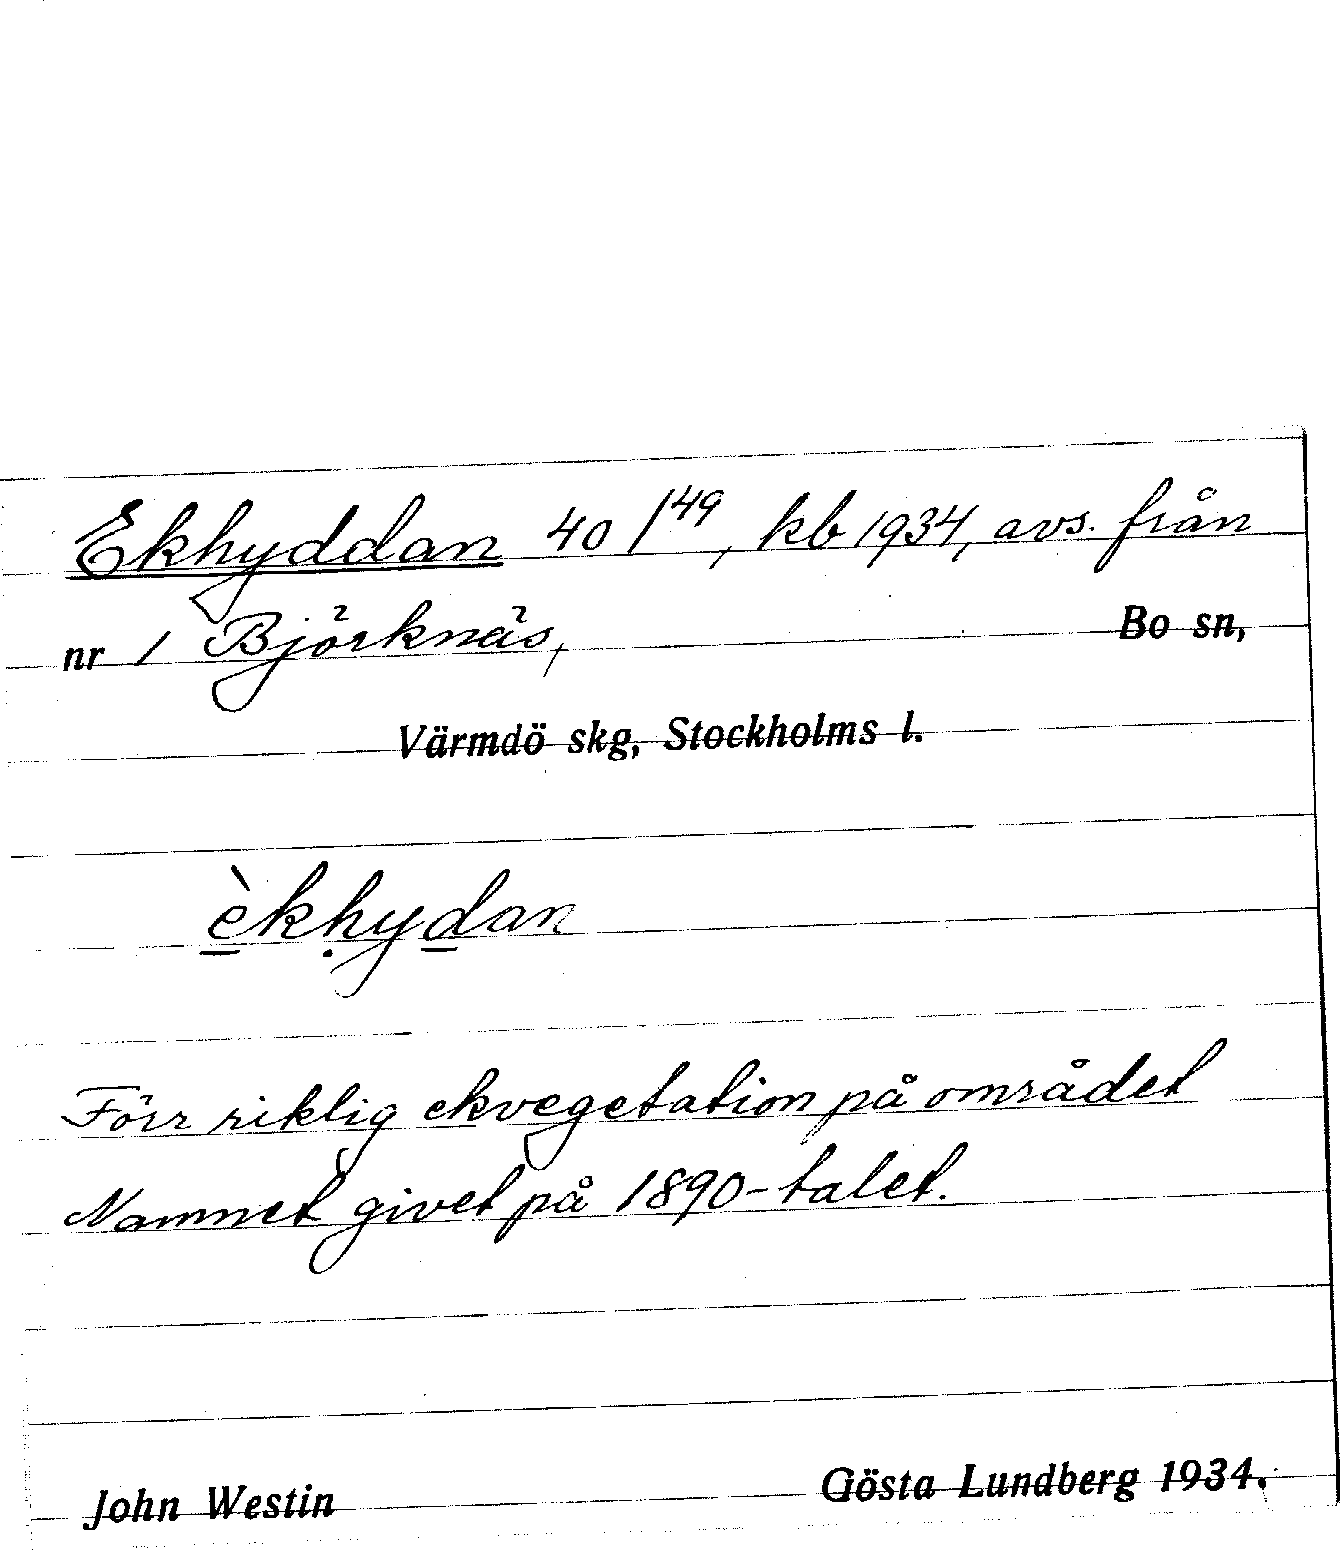 Ekhyddan 40/149, kb 1934, avs. från
nr 1 Björknäs, Bo sn,
Värmdö skg, Stockholms l.
èkḥydan
Förr riklig ekvegetation på området
Namnet givet på 1890-talet.
John Westin Gösta Lundberg 1934.